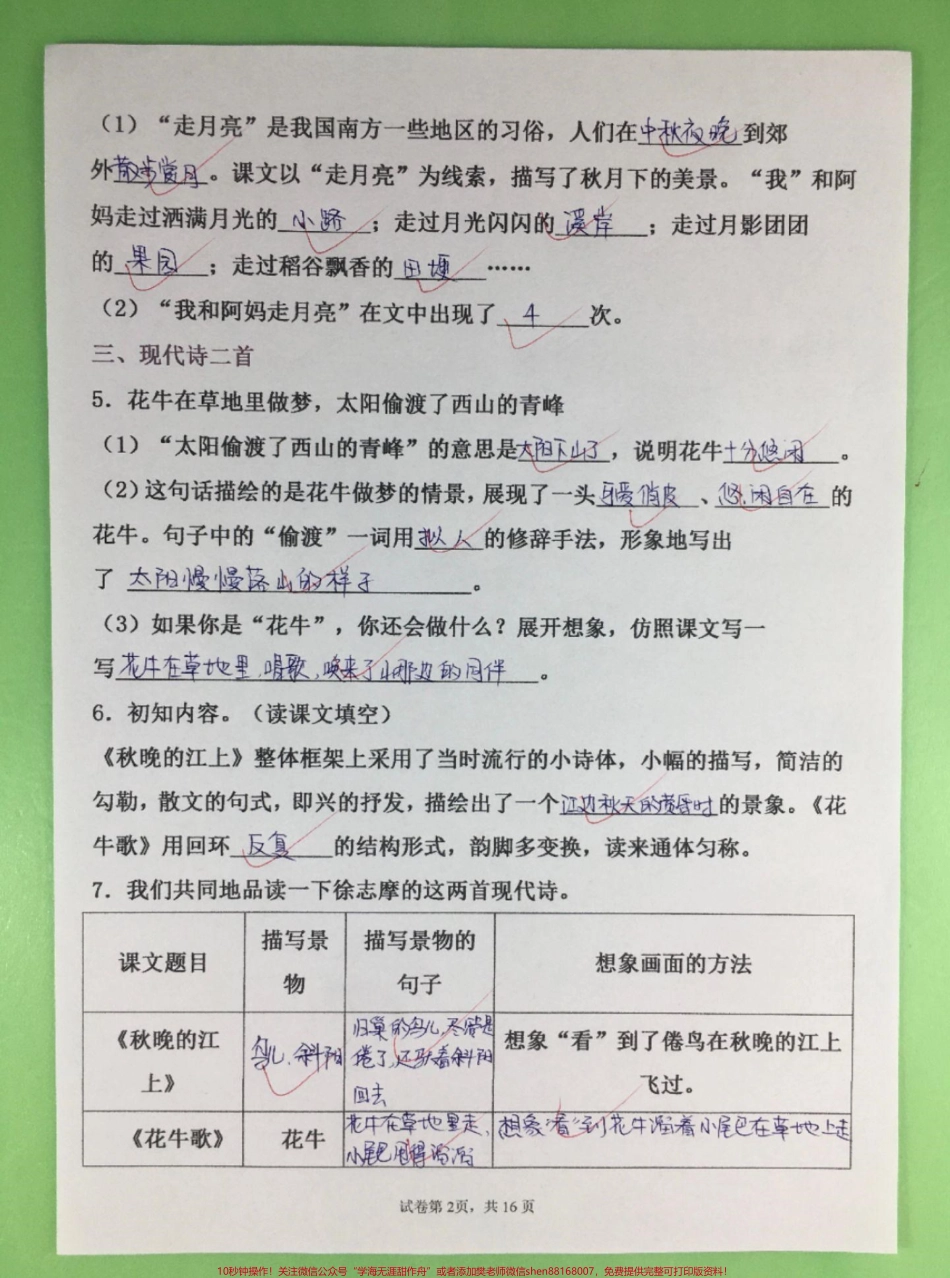 （1）“走月亮”是我国南方一些地区的习俗，人们在中秋夜晚到郊
外散步赏月。课文以“走月亮”为线索，描写了秋月下的美景。“我”和阿
妈走过洒满月光的小路；走过月光闪闪的溪岸；走过月影团团
的果园；走过稻谷飘香的田埂……
（2）“我和阿妈走月亮”在文中出现了4次。
三、现代诗二首
5．花牛在草地里做梦，太阳偷渡了西山的青峰
（1）“太阳偷渡了西山的青峰”的意思是太阳下山了，说明花牛十分悠闲。
（2）这句话描绘的是花牛做梦的情景，展现了一头可爱俏皮、悠闲自在的
花牛。句子中的“偷渡”一词用拟人的修辞手法，形象地写出
了太阳慢慢落山的样子。
（3）如果你是“花牛”，你还会做什么？展开想象，仿照课文写一
写花牛在草地里，唱歌，唤来了山那边的同伴。
6．初知内容。（读课文填空）
《秋晚的江上》整体框架上采用了当时流行的小诗体，小幅的描写，简洁的
勾勒，散文的句式，即兴的抒发，描绘出了一个江边秋天的黄昏时的景象。《花
牛歌》用回环反复的结构形式，韵脚多变换，读来通体匀称。
7．我们共同地品读一下徐志摩的这两首现代诗。
课文题目
描写景
物
描写景物的
句子
想象画面的方法
《秋晚的江
上》
鸟儿、斜阳
归巢的鸟儿，尽管是
倦了，还驮着斜阳
回去
想象“看”到了倦鸟在秋晚的江上
飞过。
《花牛歌》
花牛
花牛在草地里走，
小尾巴甩得滴溜
想象“看”到花牛甩着小尾巴在草地上走
试卷第2页，共16页
10秒钟操作！关注微信公众号“学海无涯甜作舟”或者添加樊老师微信shen88168007，免费提供完整可打印版资料！